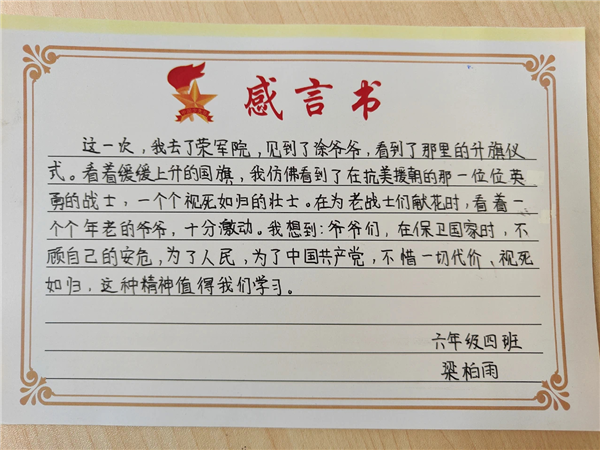 感言书
这一次，我去了荣军院，见到了涂爷爷，看到了那里的升旗仪
式。看着缓缓上升的国旗，我仿佛看到了在抗美援朝的那一位位英
勇的战士，一个个视死如归的壮士。在为老战士们献花时，看着一
个个年老的爷爷，十分激动。我想到：爷爷们，在保卫国家时，不
顾自己的安危，为了人民，为了中国共产党，不惜一切代价、视死
如归，这种精神值得我们学习。
六年级四班
梁柏雨